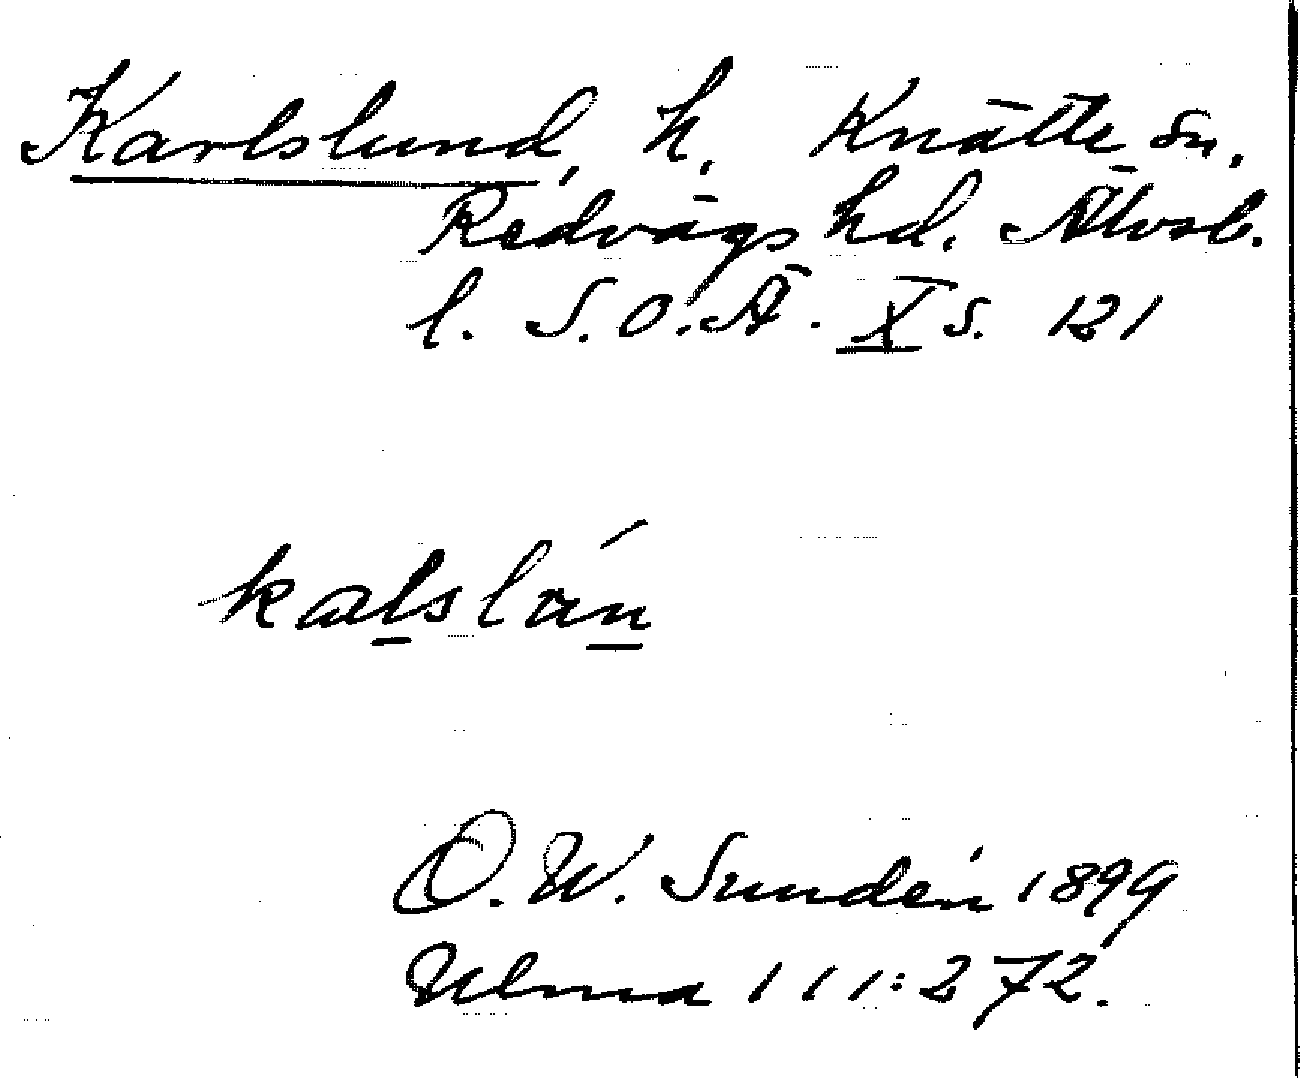 Karlslund, h. Knätte sn.
Redvägs hd. Älvsb.
l. S.O.Ä. X s. 121
kalslán
O.W. Sundén 1899
Ulma 111:272.